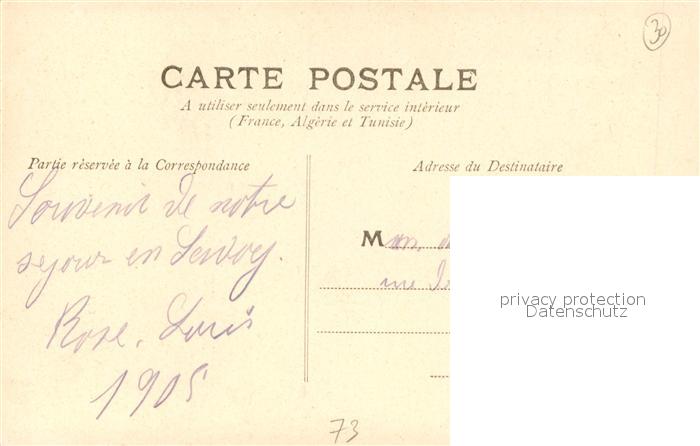 30
CARTE POSTALE
A utiliser seulement dans le service intérieur
(France, Algérie et Tunisie)
Partie réservée à la Correspondance
Adresse du Destinataire
Souvenir de notre
sejour en Savoy.
Rose, Louis
1905
M
privacy protection
Datenschutz
73